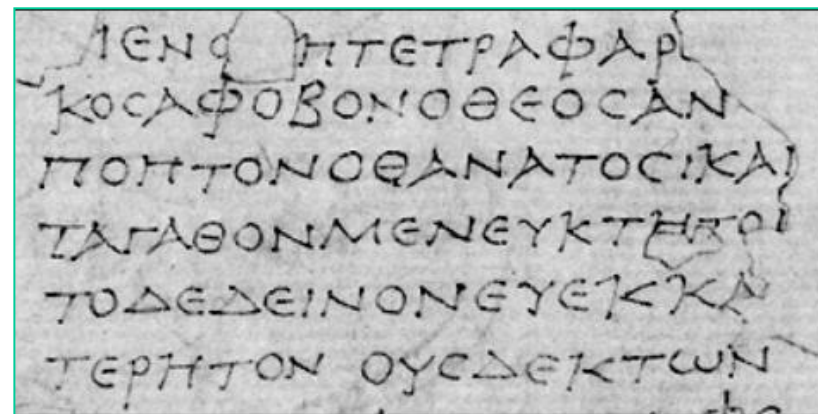 ΙΕΝΟ ΗΤΕΤΡΑΦΑΡ
ΚΟCΑΦΟΒΟΝΟΘΕΟCΑΝ
ΠΟΠΤΟΝΟΘΑΝΑΤΟCΙΚΑΙ
ΤΑΓΑΘΟΝΜΕΝΕΥΚΤΗΤΟ
ΤΟΔΕΔΕΙΝΟΝΕΥΕΚΚΑ
ΤΕΡΗΤΟΝ ΟΥCΔΕΚΤΩΝ